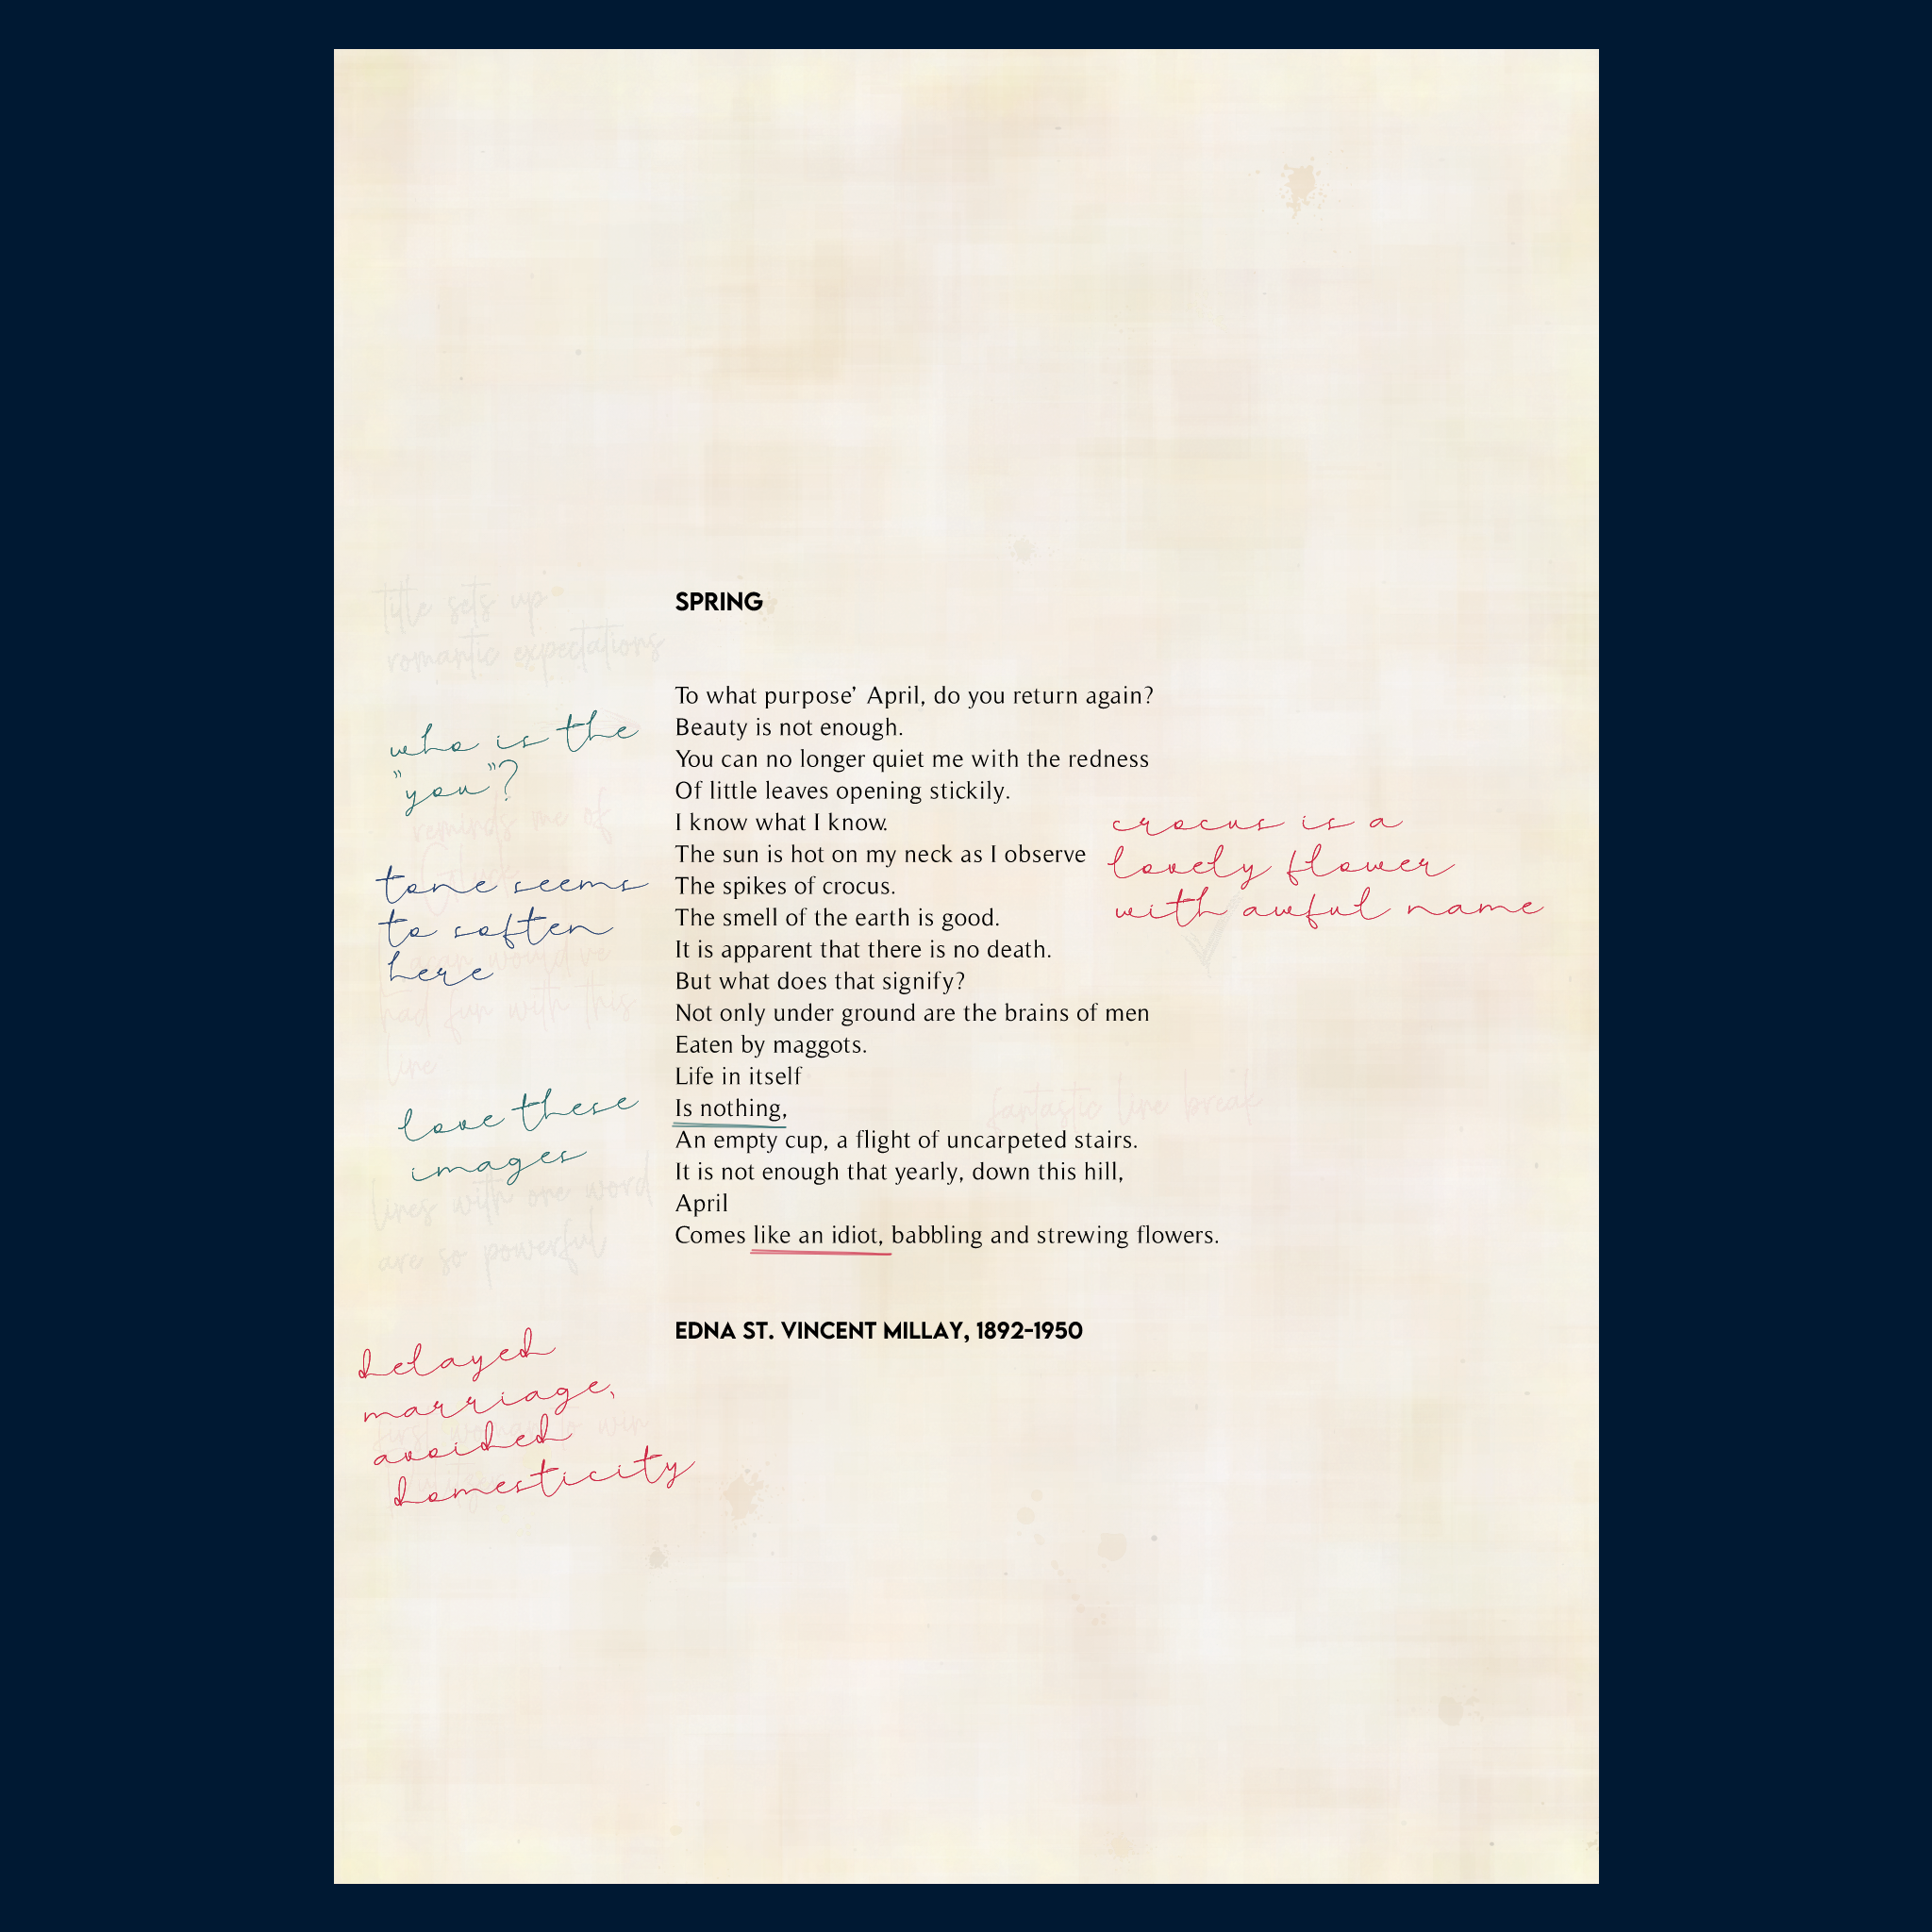 SPRING
title sets up
romantic expectations
To what purpose’ April, do you return again?
Beauty is not enough.
You can no longer quiet me with the redness
Of little leaves opening stickily.
I know what I know.
The sun is hot on my neck as I observe
The spikes of crocus.
The smell of the earth is good.
It is apparent that there is no death.
But what does that signify?
Not only under ground are the brains of men
Eaten by maggots.
Life in itself
Is nothing,
An empty cup, a flight of uncarpeted stairs.
It is not enough that yearly, down this hill,
April
Comes like an idiot, babbling and strewing flowers.
EDNA ST. VINCENT MILLAY, 1892-1950
who is the
"you"?
reminds me of
tone seems
to soften
here
would've
had fun with this
line
love these
images
lines with one word
are so powerful
delayed
marriage,
avoided
domesticity
first woman to win
crocus is a
lovely flower
with awful name
fantastic line break